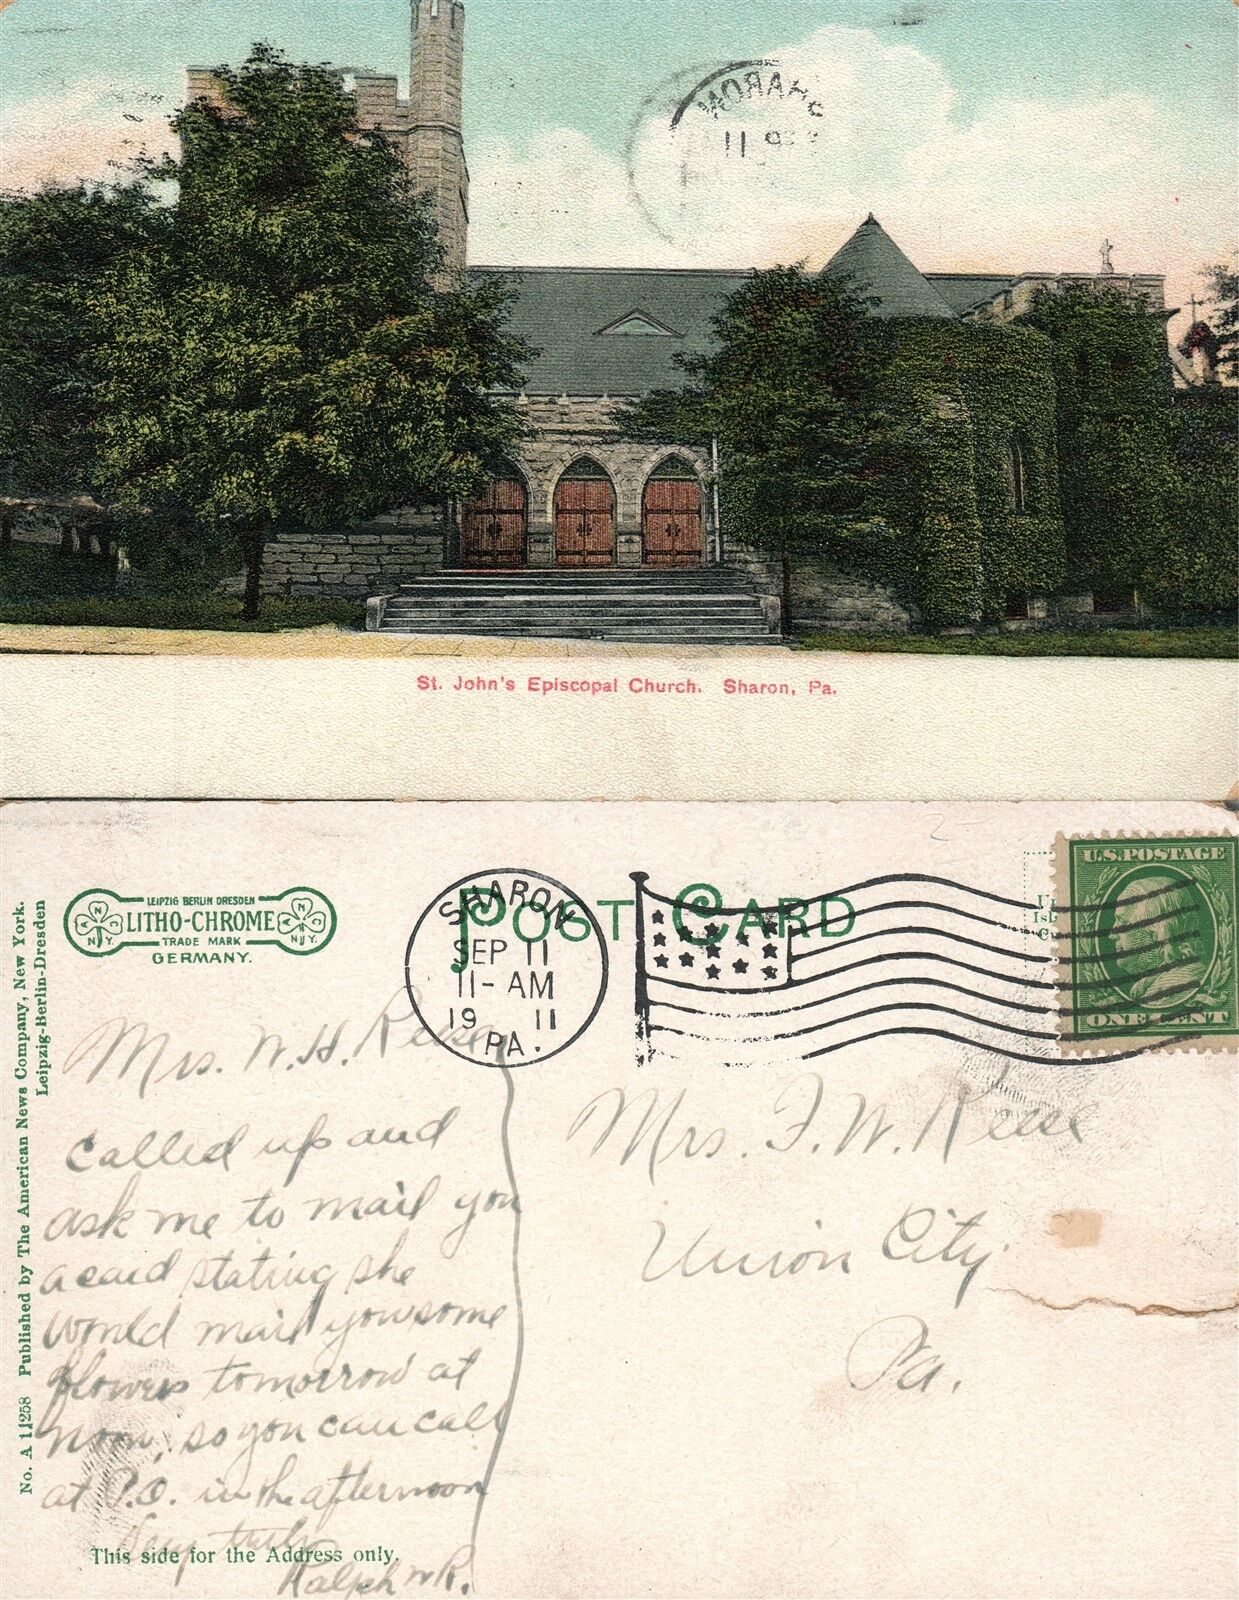 SHARON
11
St. John's Episcopal Church. Sharon, Pa.
LEIPZIG BERLIN DRESDEN
LITHO-CHROME
TRADE MARK
GERMANY.
N N
N.Y.
N N
N.Y.
POST CARD
SHARON
SEP 11
11-AM
19 11
PA.
U.S.POSTAGE
ONE CENT
No. A 11258 Published by The American News Company, New York.
Leipzig-Berlin-Dresden
Mrs. W. H. Reese
called up and
ask me to mail you
a card stating she
would mail you some
flowers tomorrow at
noon, so you can call
at P.O. in the afternoon
Very truly
Ralph W R.
This side for the Address only.
Mrs. F. W. Reese
Union City
Pa.